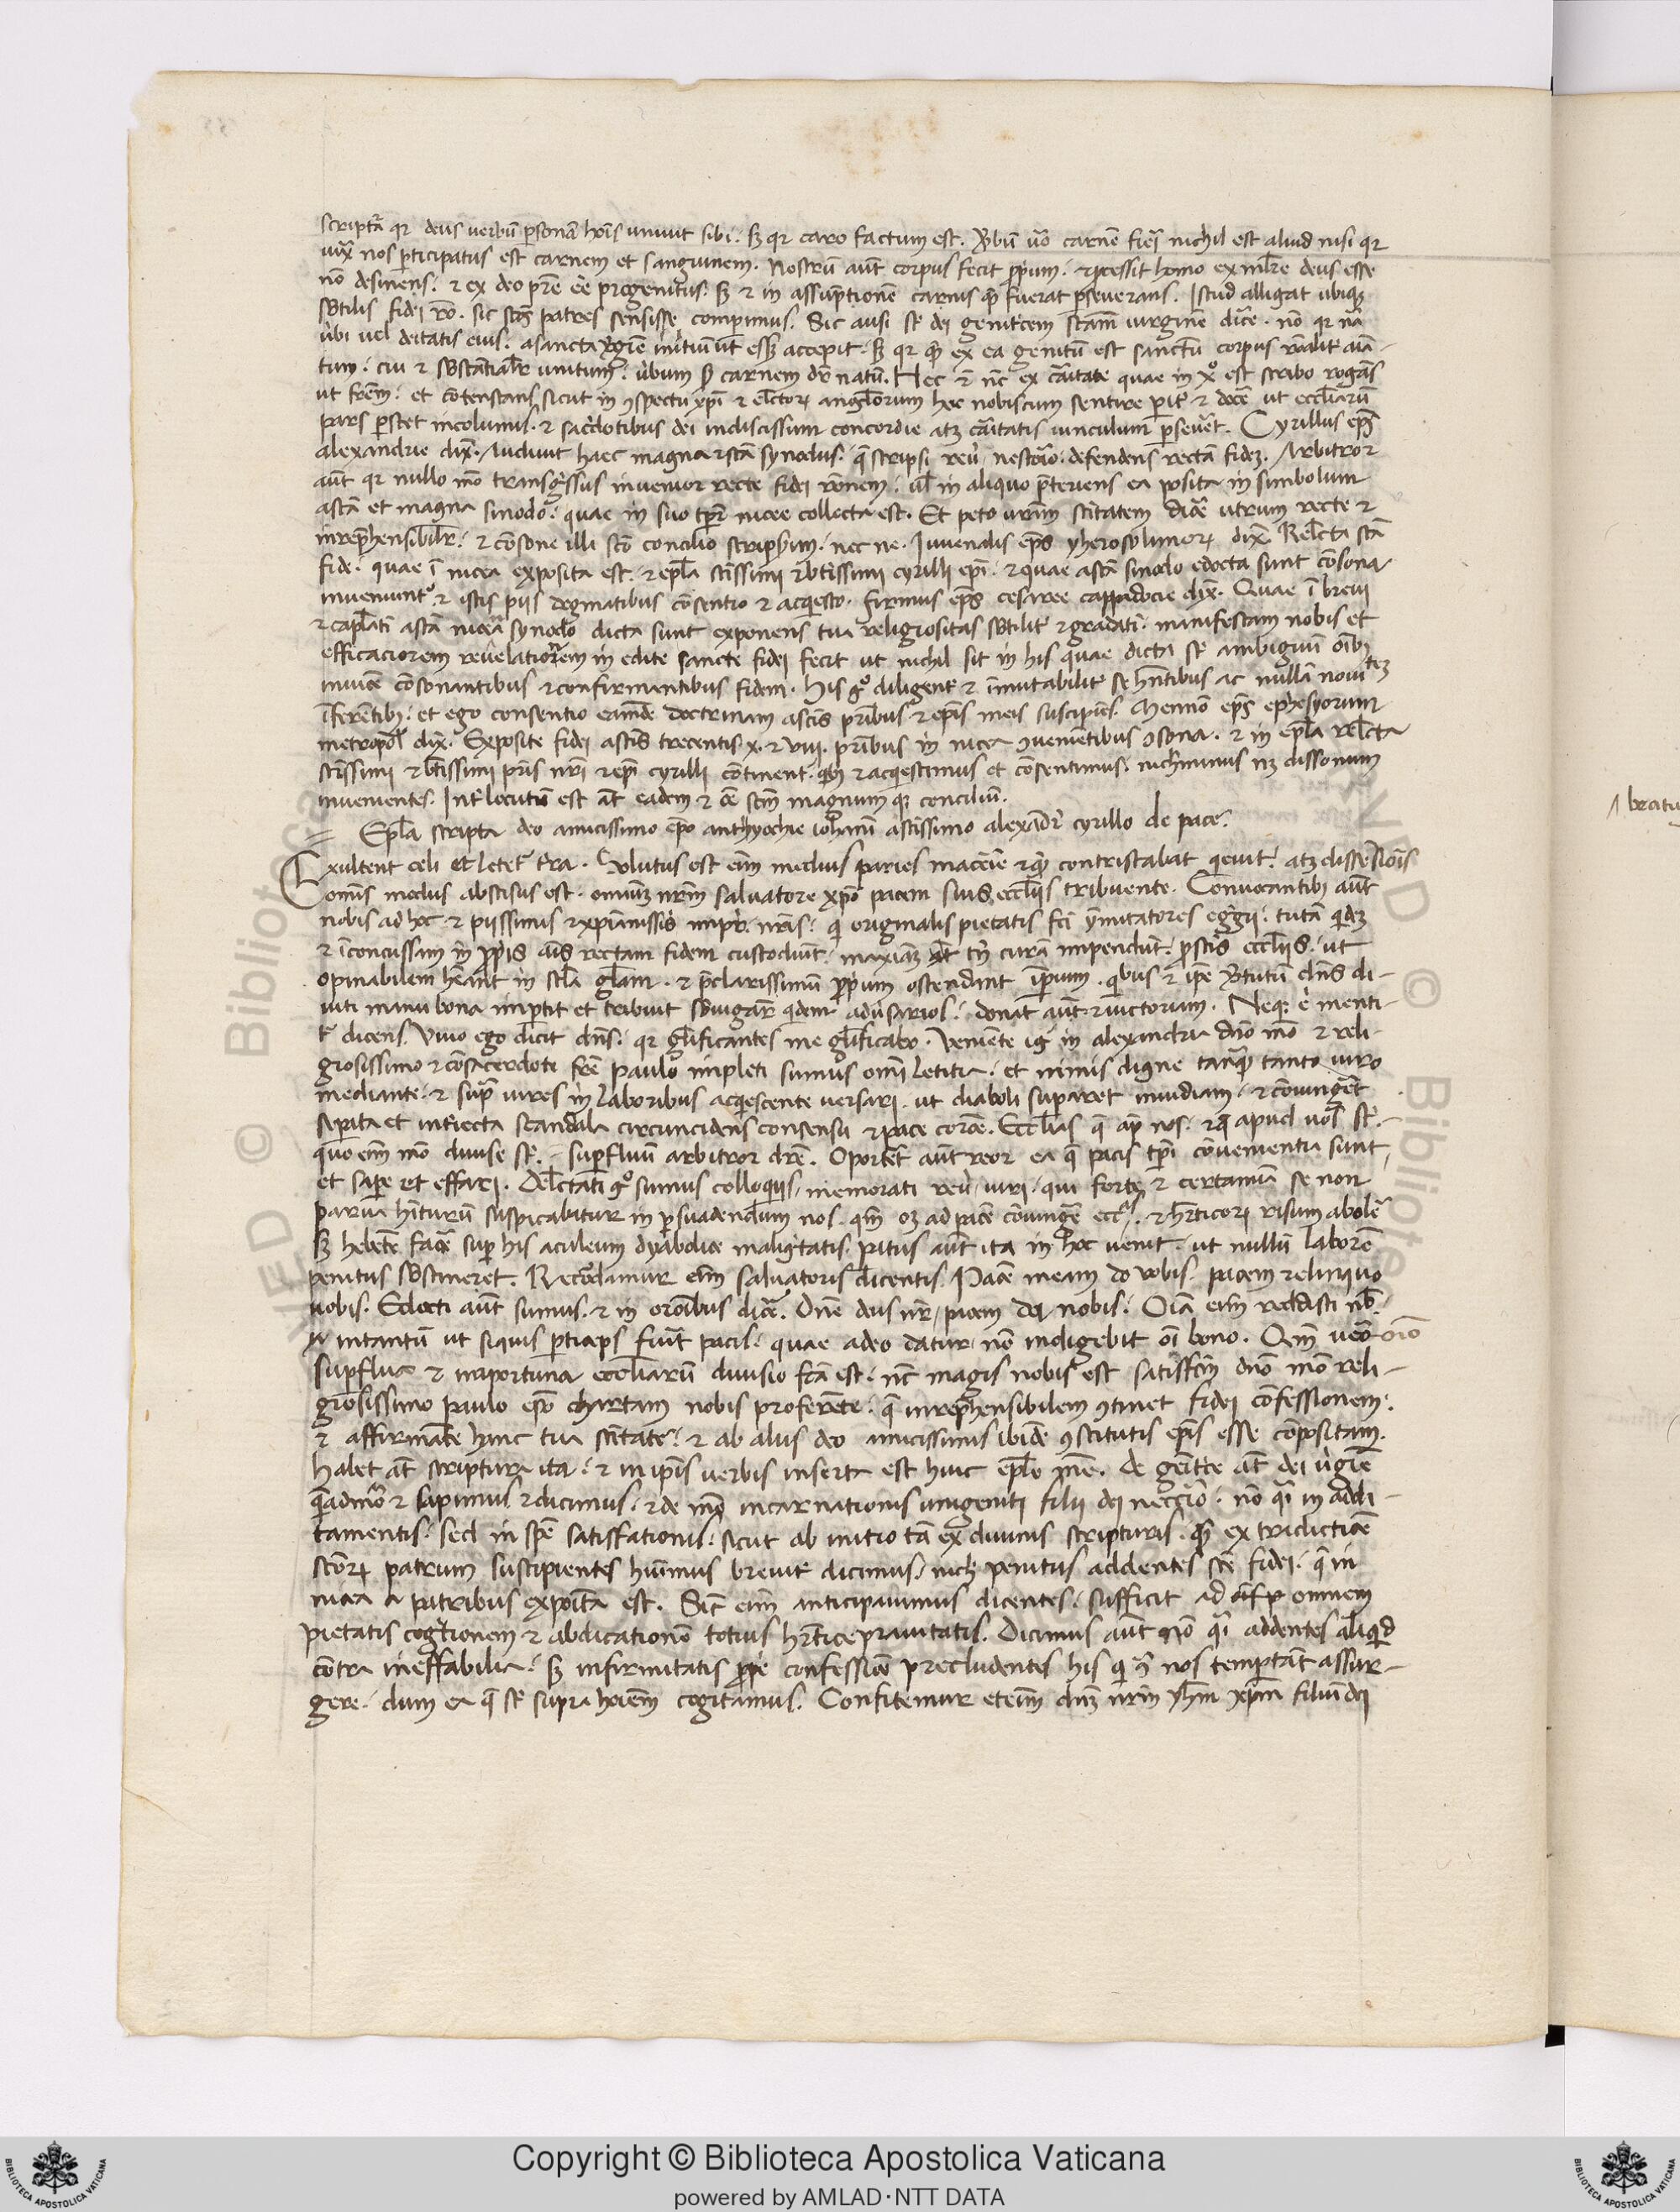 scriptᷓa qr deus uerbū ꝑsonā hoīs uniuit sibi. sꝫ qr caro factum est. ỽbū ūo carnē fieri nichil est aliud nisi qr
iuxᷓ nos ꝑticipatus est carnem et sanguinem. Nostrū aūt corpus fecit ꝓprium. et ꝓcessit homo ex mlꝛe deus esse
nō desinens. et ex deo pr̄e ēē progenitus. sꝫ et in assūptionē carnis qđ fuerat ꝑseuerans. Istud alligat ubiqꝫ
sbtilis fidei rō. sic sctos patres sensisse comperimus. Sic ausi sr̄ dei genitcem scam uirginē dice. nō qr nā
ubi uel deitatis eius. asancta ỽgīe initiū ut essꝫ accepit. sꝫ qr qđ ex ea genitū est sanctū corpus
tum. cui et sbstātialr̄ unitum. ubum carnem dr̄ natū. Hec et nc̄ ex caitate quae in xo est scribo rogās
ut frēm. et cōtenstans sicut in ꝯspectu xpī et elctoꝝ angloꝛum hec nobiscum sentire et docē ut ecclīarū
pars ꝑstet incolumis. et sacdotibus dei indiscissum concordie atꝫ caitatis uinculum ꝑseueꝛet. Cyrillus ep̄s
alexandrie dix̄. Audiuit haec magna et scā synodus. q̄ scripsi reū nestorio defendens rectā fidem. Arbitror
aūt qr nullo mō transgressus inuenior recte fidei rōnem. ul̄ in aliquo p̄teriens ea posita in simbolum
ascā et magna sinodo. quae in suo tp̄r nicee collecta est. Et peto ur̄am scitatem dicē utrum recte et
inrep̄hensibilr̄. et cōsone illi scō concilio scripserim. nec ne. Iuuenalis ep̄s yherosolimoꝝ dix̄. Relcta scā
fide. quae ī nicea exposita est. et epl̄a sctissimi et btissimi cyrilli ep̄i. et quae ascā sinodo edocta sunt cōsona
inueniunt̄. et istis piis dogmatibus cōsentio et acq̄esco. firmus ep̄s cesaree cappadocie dix̄. Quae ī breui
et caplati ascā nicea synodo dicta sunt exponens tua religiositas sbtilit̄ et gradatī. manifestam nobis et
efficaciorem reuelationem in edite sancte fidei fecit ut nichil sit in his quae dicta sr̄ ambiguū oībꝫ
inuicē cōsonantibus et confirmantibus fidem. His go diligent̄ et īmutabilit̄ se hn̄tibus ac nullā nouitatem
īferētibꝫ. et ego consentio eamde doctrinam ascis prībus et ep̄is meis suscipiēs. Mennō ep̄s ephesyorum
metropol̄ dix̄. Exposite fidei ascis trecentis x. et viii. prībus in nicea ꝯuenietibus ꝯsona. et in epl̄a relcta
sctissimi et btissimi pris nr̄i et ep̄i cyrilli cōtinent. qbꝫ et acq̄escimus et cōsentimus. nichminus nꝫ dissonum
inuenientes. Int̄locutū est aūt eadem et oē scm magnum qꝫ conciliū.
Epl̄a scripta deo amicissimo epō anthyochie iohāni asctissimo alexādrī cyrillo de pace.
Exultent celi et letet̄ t̄ra. Solutus est eīm medius paries macerie et qđ contristabat qeuit. atꝫ dissensiōis
omīs modus abscisus est. omiuꝫ nrm saluatore xpō pacem suis ecclīis tribuente. Conuocantibꝫ aūt
nobis ad hoc. et piissimis et xpianissīs impr. nris. qi originalis pietatis fcī ymitatores egrgii. tutā qidē
et īconcussam in ꝓpiis aīs rectam fidem custodiūt. maxiaꝫ aūt tn̄ curā impendūt. ꝓ scīs ecclīis. ut
opinabilem heāt in scla glam. et p̄clarissimū ꝓpium ostendant īperium. qbus et ipē ỽtutū dn̄s di-
uiti manu bona imptit et tribuit sbiugar qidem aduersarios. donat aūt uictorum. Neqꝫ ē menti-
r̄ dicens. Viuo ego dicit dn̄s. qr glificantes me glificabo. Veniente ig in alexandria dnō mō et reli-
giosissimo et cōsacerdote fr̄e paulo impleti sumus omī letitia. et nimis digne tanqᷓ tanto uiro
mediante. et supᷓ uires in laboribus acqiescente uersari. ut diaboli superet inuidiam. et coniungēt
sepata et infecta scandala circuncidens consensu et pace coronē. Ecclīas q̄ ap nos. et q̄ apud uos sr̄.
quo eīm mō diuise sr̄. superfluū arbitror dice. Oportet aūt reor ea q̄ pacis tp̄i conuenientia sunt
et sapere et effari. Delctati go sumus colloqiis memorati reū uiri. qui forte et certamīa se non
parua hīturū suspicabatur in ꝑsuadendum nos. qm̄ oꝫ ad pacē coniungē. et hr̄ticoꝝ risum abolē
sꝫ hebetē facē super his aculeum dyabolice maligtatis. patus aūt ita in hoc uenit. ut nullū laborē
penitus sbstineret. Recordamur eīm saluatoris dicentis. Pacē meam do uobis. pacem relinquo
uobis. Edocti aūt sumus. et in orōibus dicē. Dnē deus nr̄ pacem dā nobis. Oīa eīm reddisti nob̄.
intantū ut siquis ꝑticeps fiūt pacis. quae adeo datur nō indigebit oī bono. Qm̄ uero oīo
superflua et inportuna ecclīarū diuisio fcā est. nc̄ magis nobis est satisfcm dnō mō reli-
giosissimo paulo epō chartam nobis proferēte. q̄ inrep̄hensibilem ꝯtinet fidei cōfessionem.
et affirmāte hanc tua scitate. et ab aliis deo amicissimis ibidē ꝯstitutis ep̄is esse cōpositam.
Habet aūt scriptura ita. et in ipīs uerbis inserta est huic eplē nr̄e. de genitce aūt dei ūgīe
qēadmō et sapimus et dicimus. et de mō incarnationis unigeniti filii dei neccrio. nō qi in addi-
tamentis. sed in spē satisfationis. sicut ab initio tā ex diuinis scripturis. qᷓ ex tradictiōe
scōꝝ patrum suscipientes huimus breuit̄ dicimus. nich penitus addentes scē fidei. q̄ in
nicea a patribus exposita est. Sic eīm anticipauimus dicentes. sufficit ad omnem
pietatis cogtionem et abdicationē totius hr̄tice prauitatis. Dicimus aūt nō qi addentes aliqid
cōtra ineffabilia. sꝫ infirmitatis ꝓpie confessiōe precludentes his qi ꝯ nos temptāt assur-
gere. dum ea q̄ sr̄ supra hoīem cogitamus. Confitemur eteīm dn̄m nrm yhm xpm filiū dei